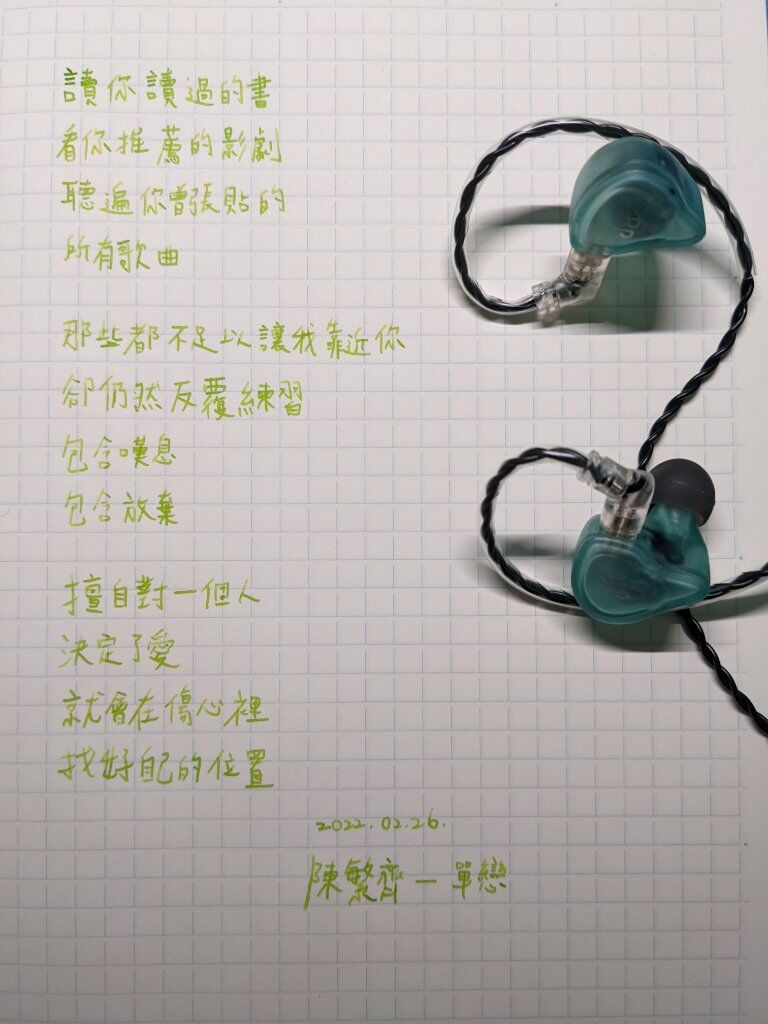 讀你讀過的書
看你推薦的影劇
聽遍你曾張貼的
所有歌曲
那些都不足以讓我靠近你
卻仍然反覆練習
包含嘆息
包含放棄
擅自對一個人
決定了愛
就會在傷心裡
找好自己的位置
2022.02.26.
陳繁齊—單戀